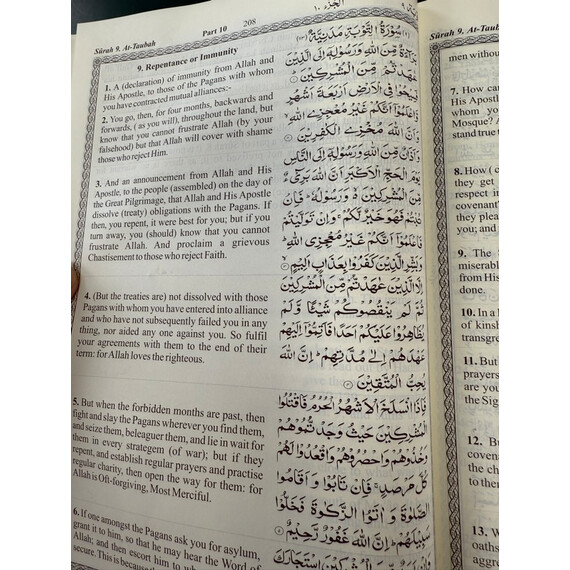 Sūrah 9. At-Taubah
Part 10
208
الجزء ١٠
9. Repentance or Immunity
1. A (declaration) of immunity from Allah and
His Apostle, to those of the Pagans with whom
you have contracted mutual alliances:-
2. You go, then, for four months, backwards and
forwards, ( as you will), throughout the land, but
know that you cannot frustrate Allah (by your
falsehood) but that Allah will cover with shame
those who reject Him.
3. And an announcement from Allah and His
Apostle, to the people (assembled) on the day of
the Great Pilgrimage, that Allah and His Apostle
dissolve (treaty) obligations with the Pagans. If
then, you repent, it were best for you; but if you
turn away, you (should) know that you cannot
frustrate Allah. And proclaim a grievous
Chastisement to those who reject Faith.
4. (But the treaties are) not dissolved with those
Pagans with whom you have entered into alliance
and who have not subsequently failed you in any
thing, nor aided any one against you. So fulfil
your agreements with them to the end of their
term: for Allah loves the righteous.
5. But when the forbidden months are past, then
fight and slay the Pagans wherever you find them,
and seize them, beleaguer them, and lie in wait for
them in every strategem (of war); but if they
repent, and establish regular prayers and practise
regular charity, then open the way for them: for
Allah is Oft-forgiving, Most Merciful.
6. If one amongst the Pagans ask you for asylum,
grant it to him, so that he may hear the Word of
Allah; and then escort him to wh
secure. This is becaus
سُوْرَةُ التَّوْبَةِ مَدَنِيَّةٌ
بَرَآءَةٌ مِّنَ اللّٰهِ وَرَسُوْلِهٖٓ اِلَى الَّذِيْنَ
عٰهَدْتُّمْ مِّنَ الْمُشْرِكِيْنَ
فَسِيْحُوْا فِى الْاَرْضِ اَرْبَعَةَ اَشْهُرٍ
وَّاعْلَمُوْٓا اَنَّكُمْ غَيْرُ مُعْجِزِى اللّٰهِ
وَاَنَّ اللّٰهَ مُخْزِى الْكٰفِرِيْنَ
وَاَذَانٌ مِّنَ اللّٰهِ وَرَسُوْلِهٖٓ اِلَى النَّاسِ
يَوْمَ الْحَجِّ الْاَكْبَرِ اَنَّ اللّٰهَ بَرِىْٓءٌ
مِّنَ الْمُشْرِكِيْنَ وَرَسُوْلُهٗ فَاِنْ
تُبْتُمْ فَهُوَ خَيْرٌ لَّكُمْ وَاِنْ تَوَلَّيْتُمْ
فَاعْلَمُوْٓا اَنَّكُمْ غَيْرُ مُعْجِزِى اللّٰهِ
وَبَشِّرِ الَّذِيْنَ كَفَرُوْا بِعَذَابٍ اَلِيْمٍ
اِلَّا الَّذِيْنَ عٰهَدْتُّمْ مِّنَ الْمُشْرِكِيْنَ
ثُمَّ لَمْ يَنْقُصُوْكُمْ شَيْئًا وَّلَمْ
يُظَاهِرُوْا عَلَيْكُمْ اَحَدًا فَاَتِمُّوْٓا اِلَيْهِمْ
عَهْدَهُمْ اِلٰى مُدَّتِهِمْ اِنَّ اللّٰهَ
يُحِبُّ الْمُتَّقِيْنَ
فَاِذَا انْسَلَخَ الْاَشْهُرُ الْحُرُمُ فَاقْتُلُوا
الْمُشْرِكِيْنَ حَيْثُ وَجَدْتُّمُوْهُمْ
وَخُذُوْهُمْ وَاحْصُرُوْهُمْ وَاقْعُدُوْا لَهُمْ
كُلَّ مَرْصَدٍ فَاِنْ تَابُوْا وَاَقَامُوا
الصَّلٰوةَ وَاٰتَوُا الزَّكٰوةَ فَخَلُّوْا
سَبِيْلَهُمْ اِنَّ اللّٰهَ غَفُوْرٌ رَّحِيْمٌ
الْمُشْرِكِيْنَ اسْتَجَارَكَ
Sūrah 9. At-Taubah
men withou
7. How ca
His Apostl
whom yo
Mosque? A
stand true t
8. How ( c
they get
respect i
covenant
they plea
you; and
9. The S
miserabl
from His
done.
10. In a
of kinsh
transgre
11. But
prayers
are you
the Sig
12. B
cove
the ch
to the
13. W
oaths
aggr